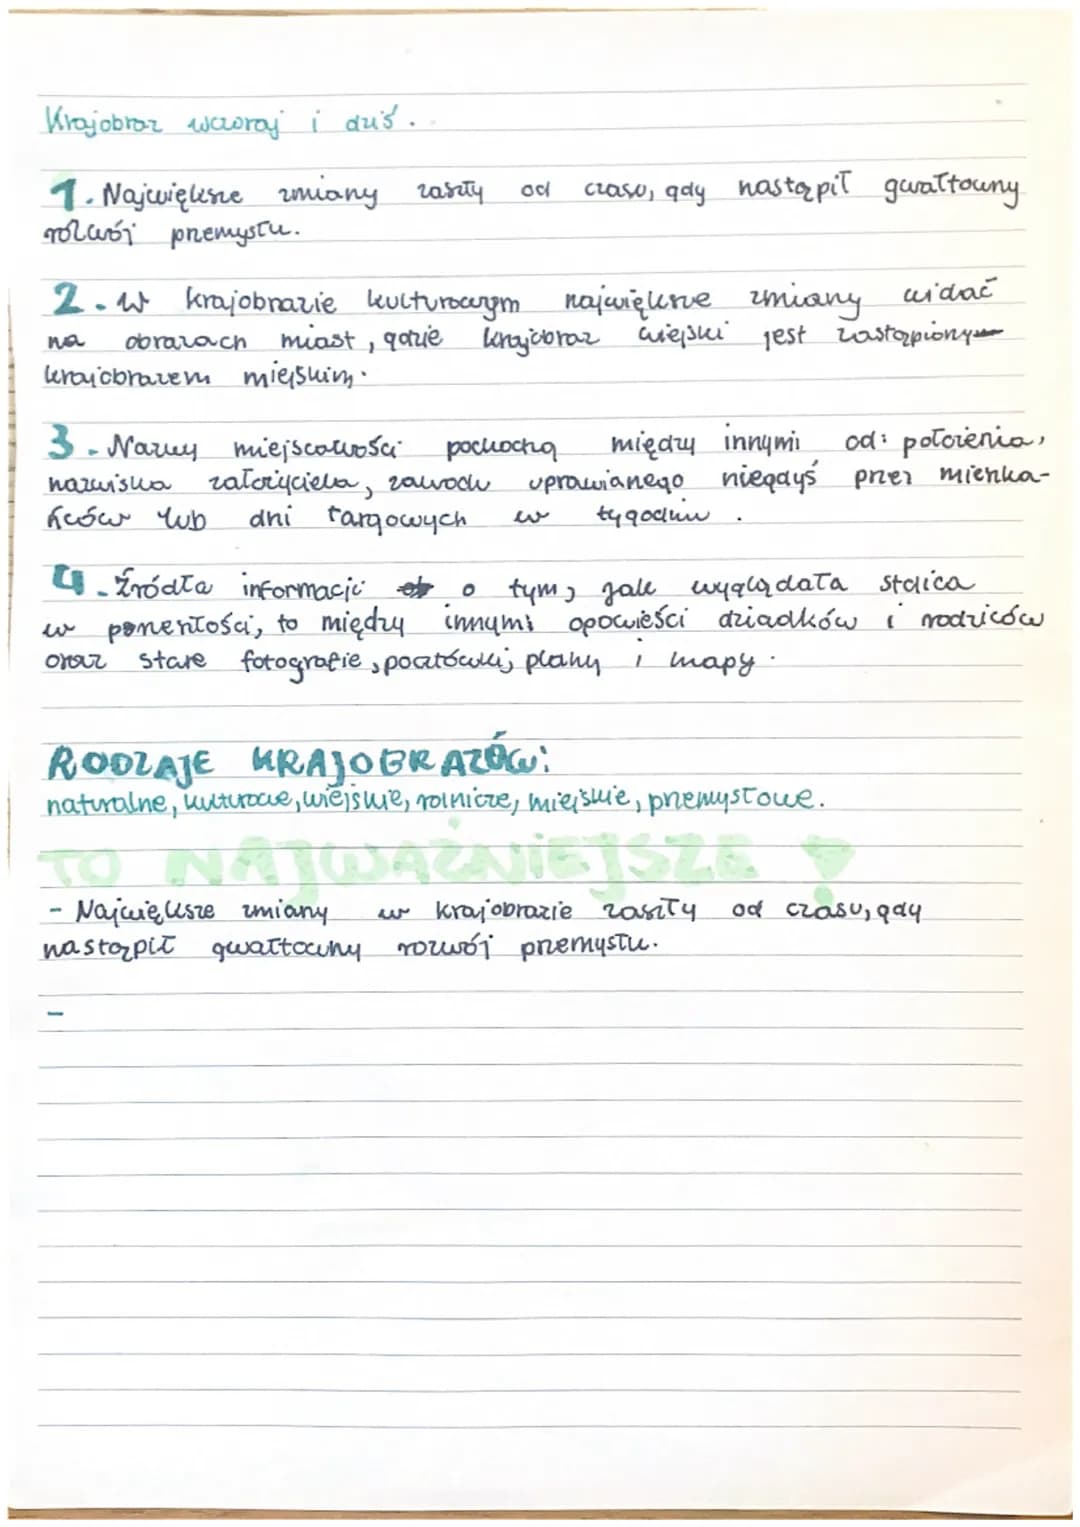 Krajobraz wczoraj i dziś.
1. Największe zmiany zaszły od czasu, gdy nastąpił gwałtowny
rozwój przemysłu.
2. W krajobrazie kulturowym największe zmiany widać
na obrazach miast, gdzie krajobraz wiejski jest zastąpiony
krajobrazem miejskim.
3. Nazwy miejscowości pochodzą między innymi od: położenia,
nazwiska założyciela, zawodu uprawianego niegdyś przez mieszka-
ńców lub dni targowych w tygodniu.
4. Źródła informacji o tym, jak wyglądała stolica
w przeszłości, to między innymi opowieści dziadków i rodziców
oraz stare fotografie, pocztówki, plany i mapy.
RODZAJE KRAJOBRAZÓW:
naturalne, kulturowe, wiejskie, rolnicze, miejskie, przemysłowe.
TO NAJWAŻNIEJSZE
- Największe zmiany w krajobrazie zaszły od czasu, gdy
nastąpił gwałtowny rozwój przemysłu.
-